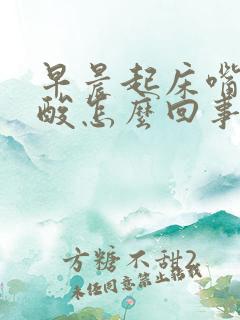 早晨起床嘴
酸怎麼回事
方糖不甜2
未经同意禁止转载